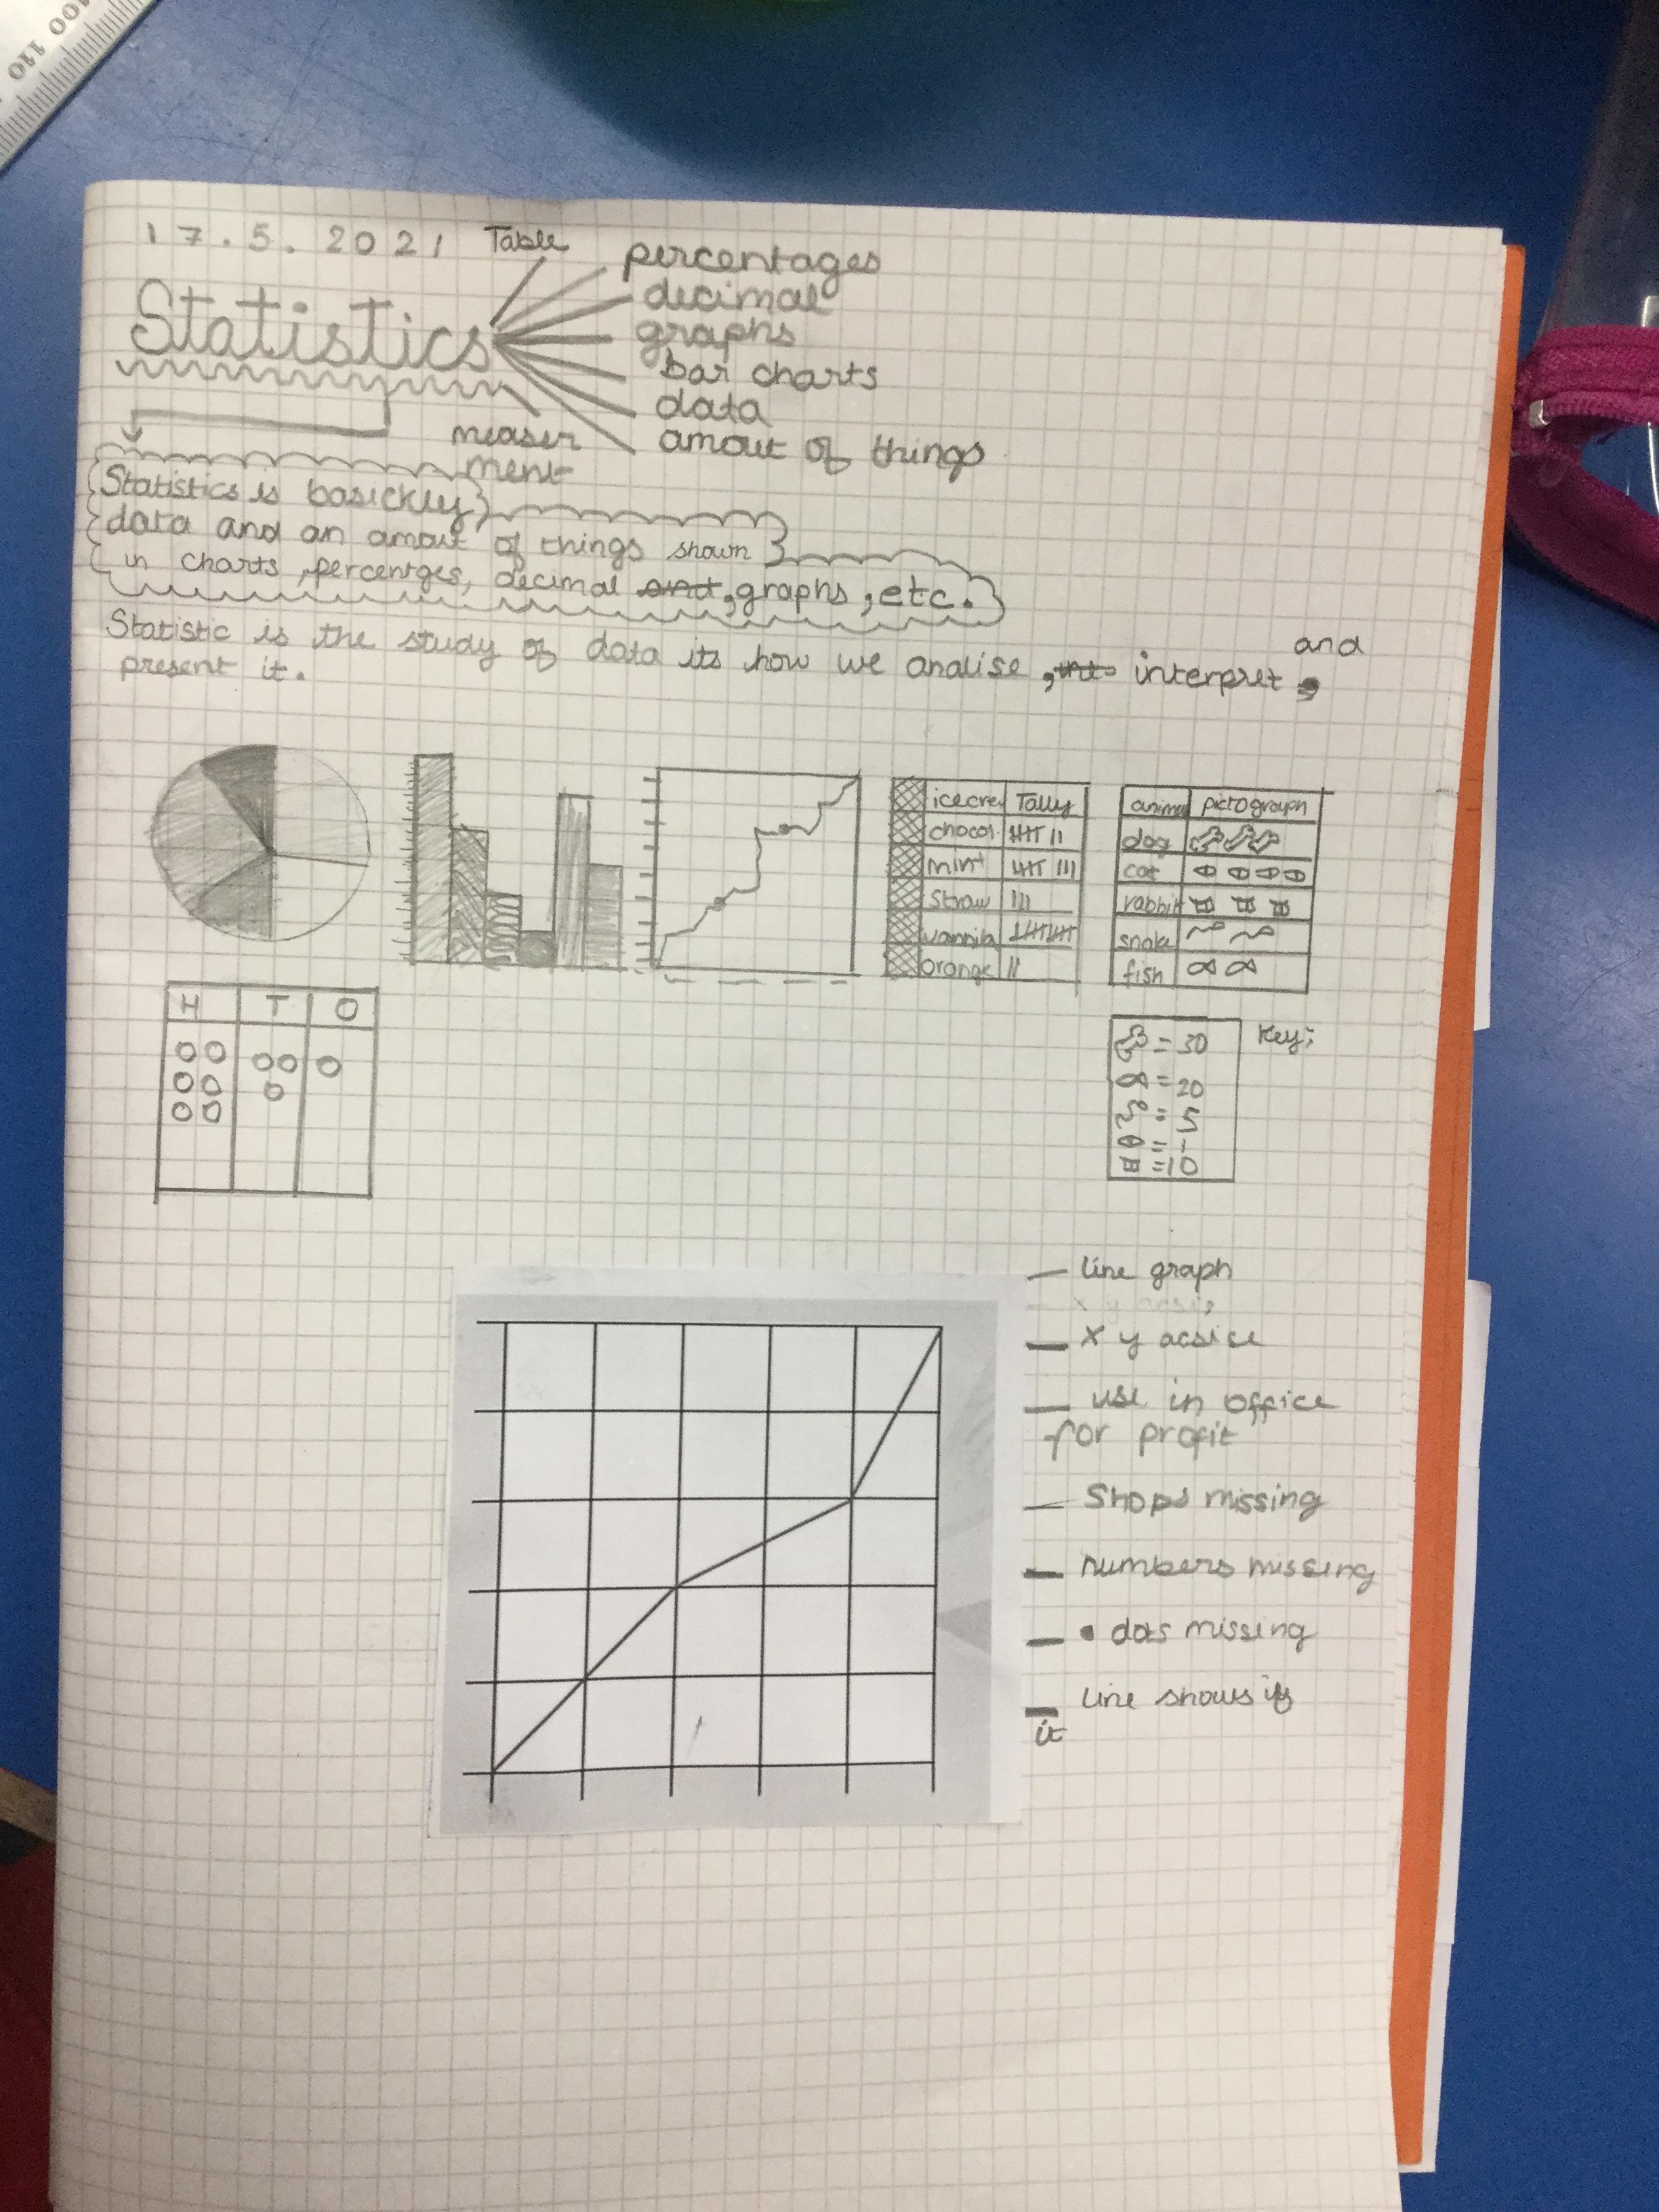 100 110
17.5.2021 Table
percentages
decimal
Statistics
graphs
bar charts
data
measer
ment
amout of things
Statistics is basickley
data and an amout of things shown
in charts, percentges, decimal and, graphs, etc.
Statistic is the study of data its how we analise, interpret and
present it.
icecre Tally
chocol.
mint
Straw
vannila
orange
anima pictograph
dog
cat
rabbit
snake
fish
H T O
Key;
= 30
= 20
= 5
= 1
= 10
line graph
x y acsice
use in office
for profit
Shops missing
numbers missing
• dots missing
line shows
it